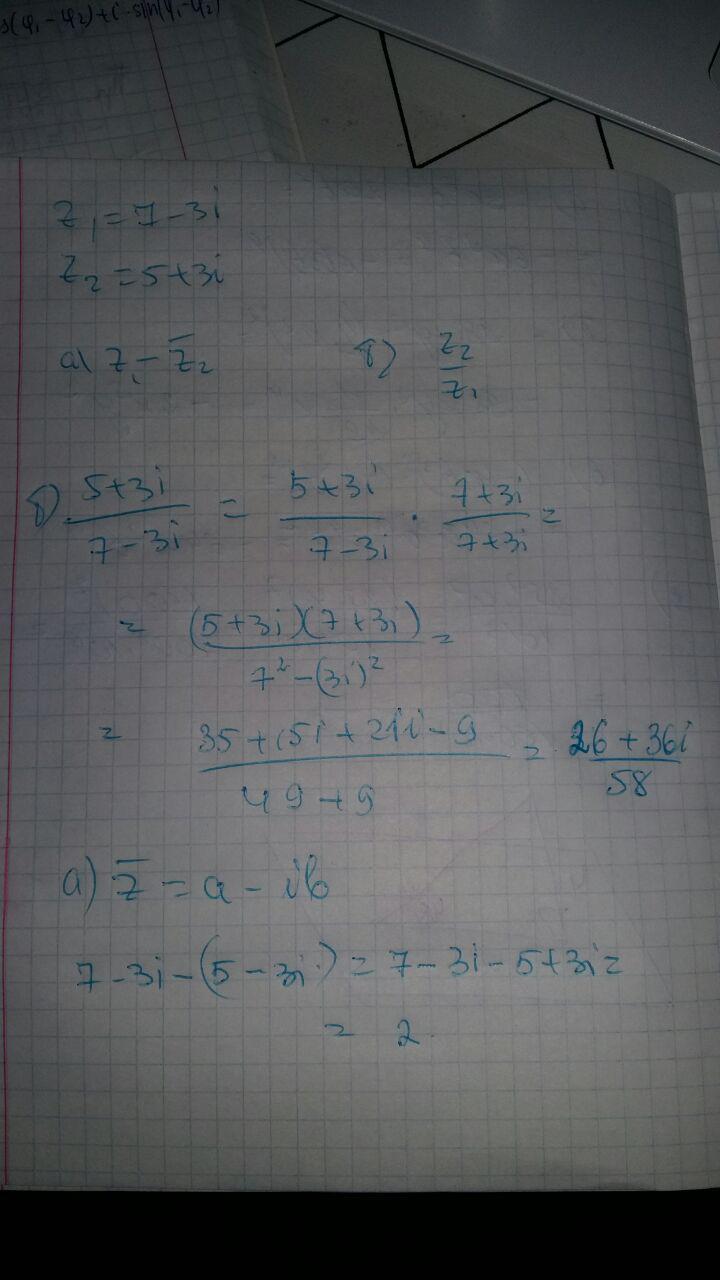 s(φ₁-φ₂)+i·sin(φ₁-φ₂)
z₁=7-3i
z₂=5+3i
a) z₁-z̅₂ б) z₂/z₁
б) (5+3i)/(7-3i) = (5+3i)/(7-3i) · (7+3i)/(7+3i) =
= ((5+3i)(7+3i))/(7²-(3i)²) =
= (35+15i+21i-9)/(49+9) = (26+36i)/58
a) z̅ = a - ib
7-3i-(5-3i) = 7-3i-5+3i=
= 2.